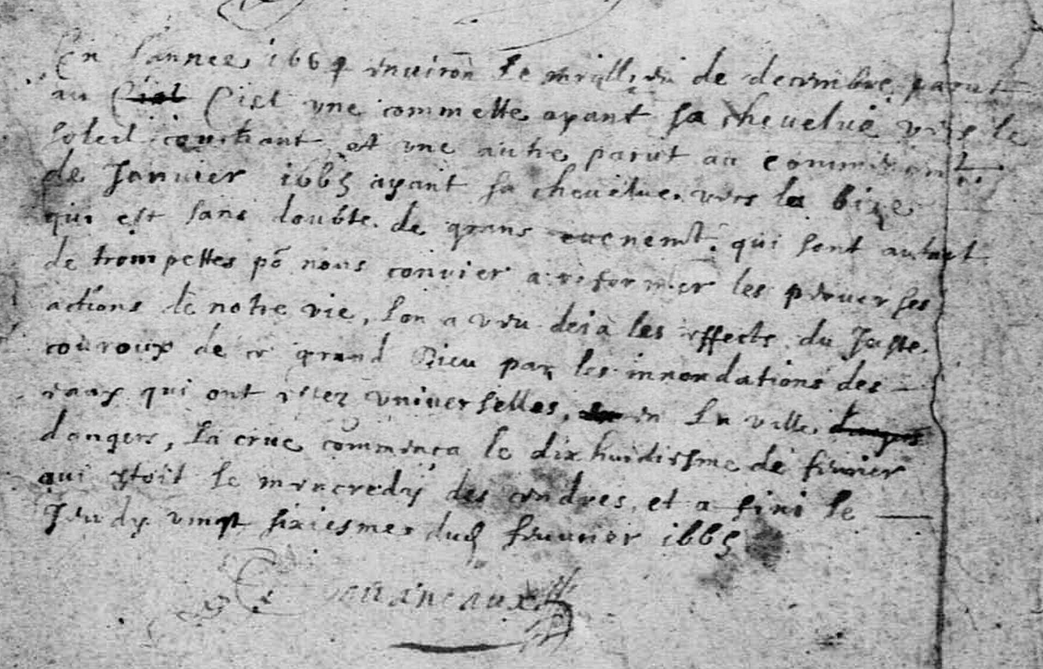 En lannee 1664 environ le millieu de decembre parut
au Ciel Ciel une commette ayant sa chevelue vers le
soleil couchant et une autre parut au commencemt.
de Janvier 1665 ayant sa chevelue vers la bize
qui est sans doubte de grans evenemt. qui sont autant
de trompettes po nous convier a reformer les perverses
actions de notre vie, lon a veu deja les effects du Juste
couroux de ce grand Dieu par les innondations des
eaux qui ont estez universelles, en la ville
dangers, la crue commenca le dixhuidiesme de febvrier
qui estoit le mercredy des cendres, et a fini le
Jeudy vingt sixiesme dud febvrier 1665